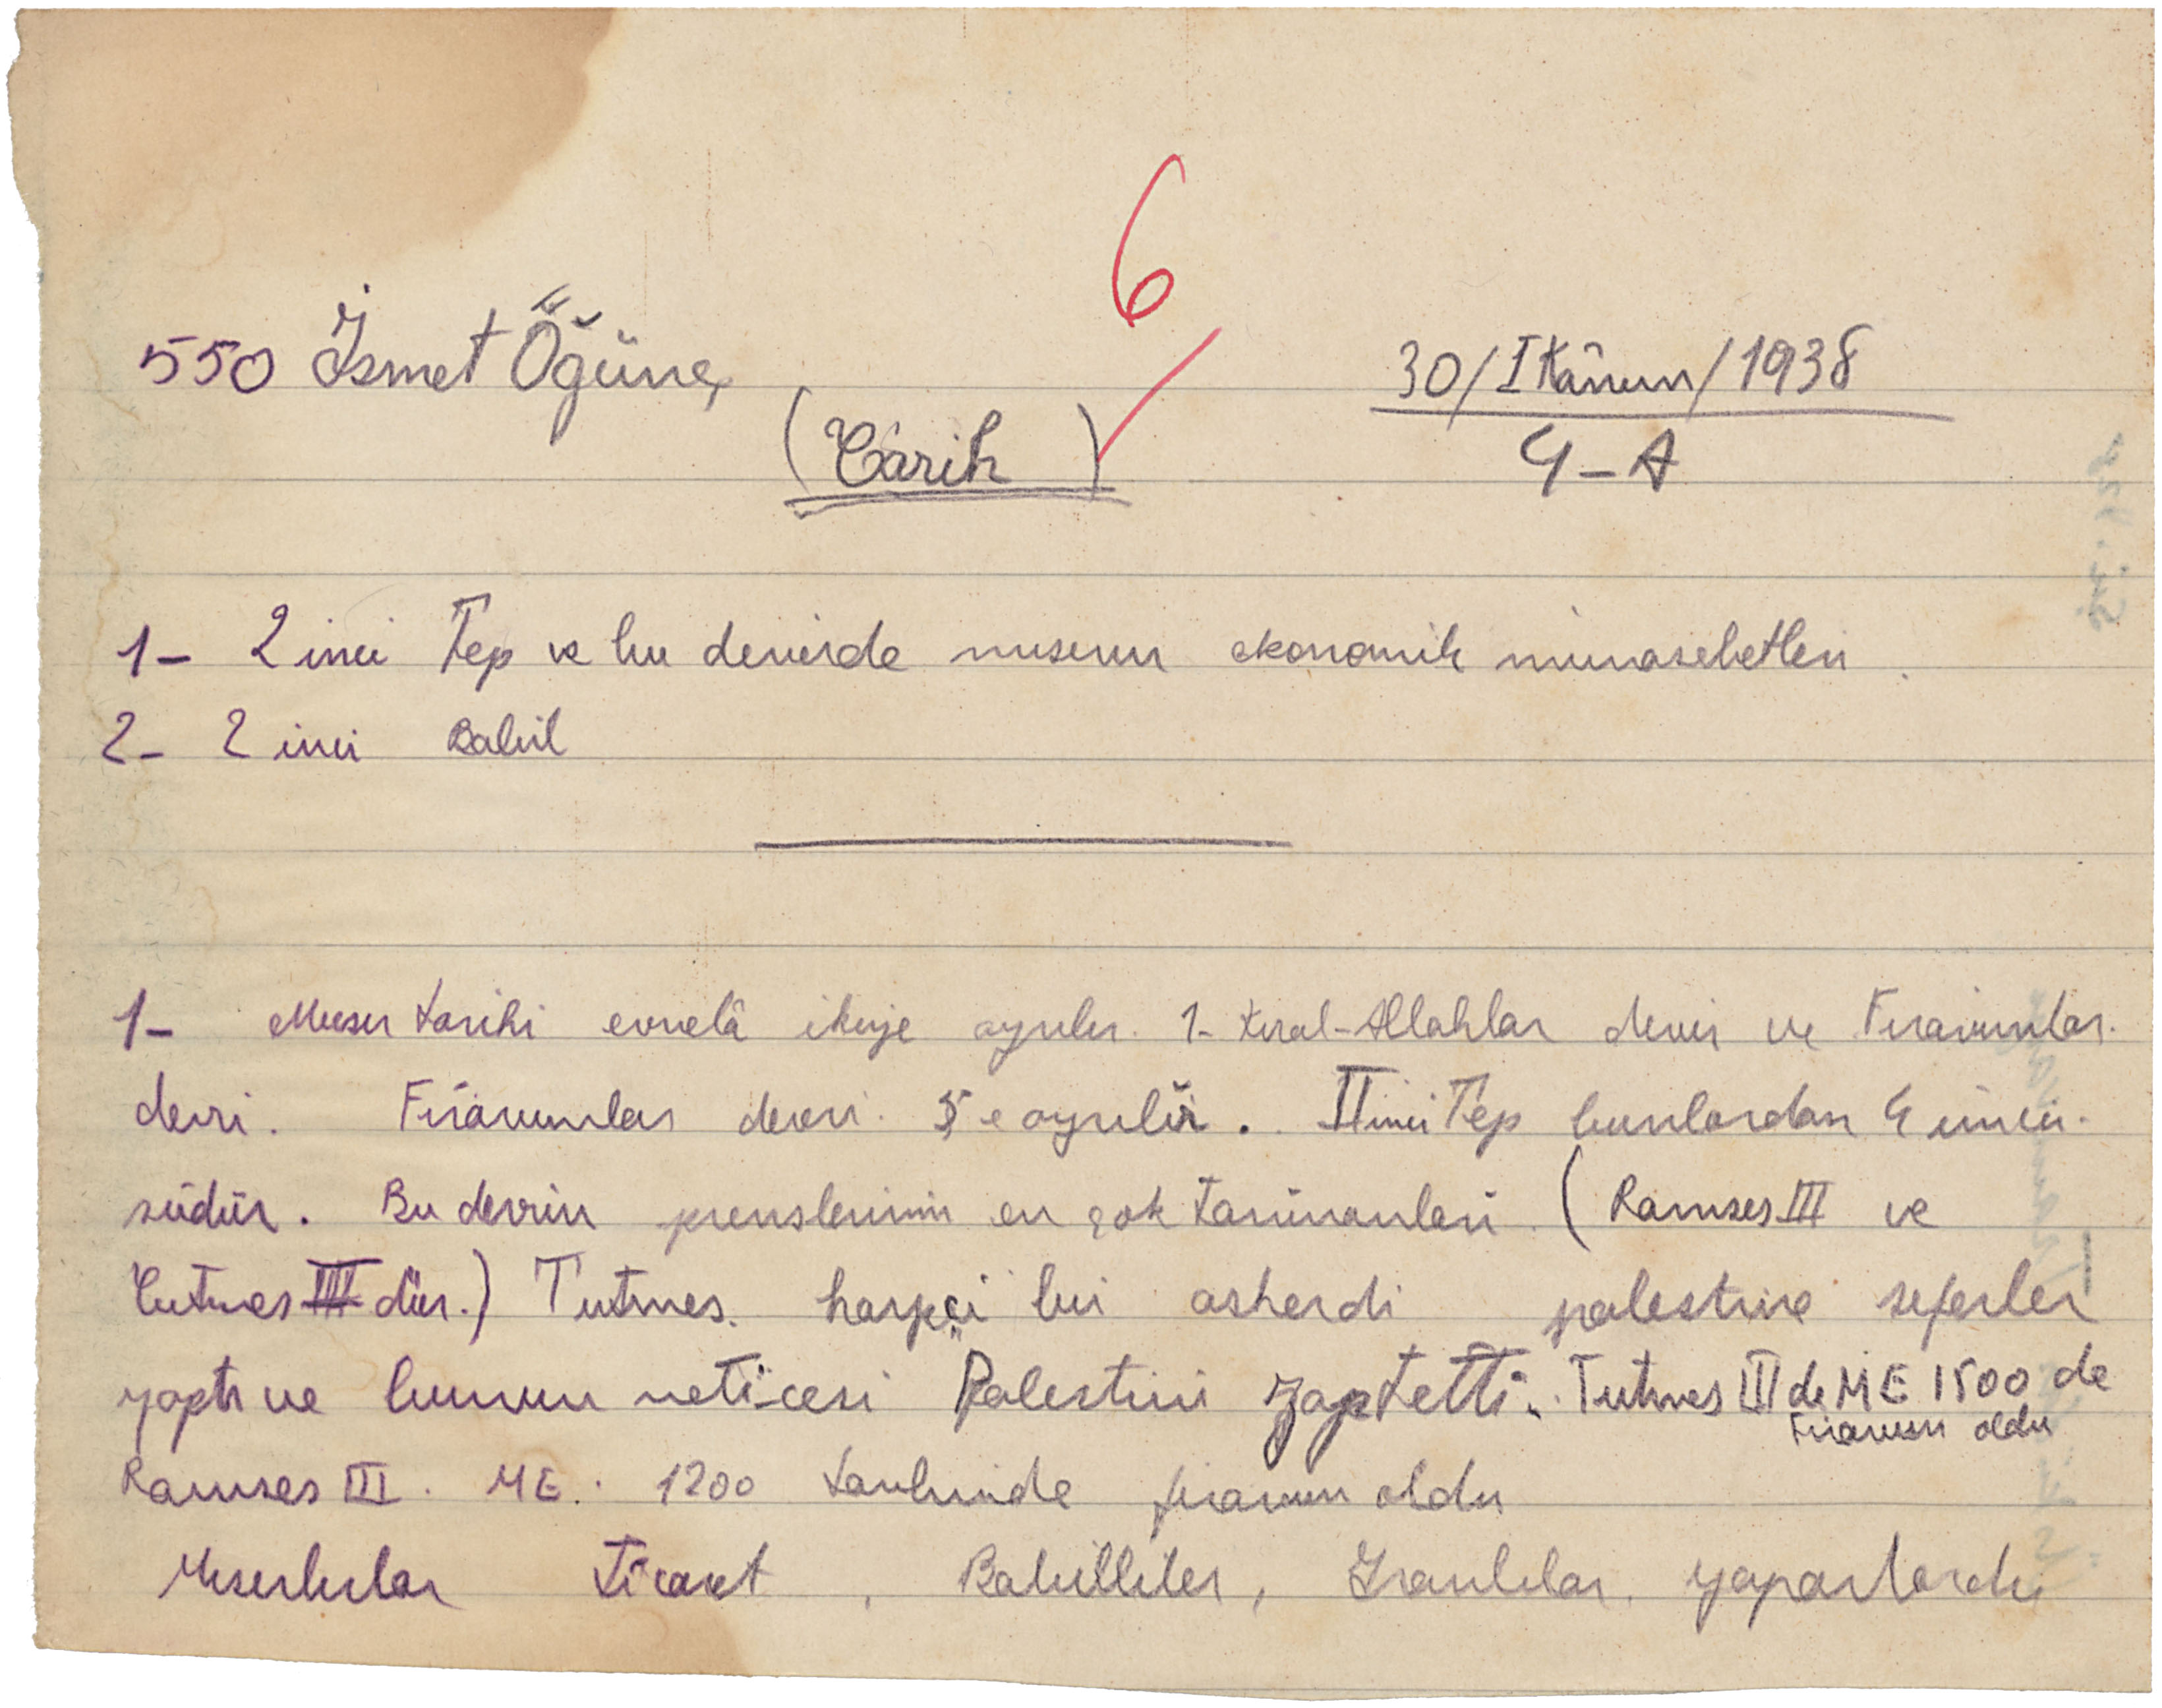 6
550 İsmet Öğünç
30/I Kânun/1938
(Tarih)
4-A
1- 2 inci Tep ve bu devirde mısırın ekonomik münasebetleri.
2- 2 inci Babil
1- Mısır tarihi evvelâ ikiye ayrılır. 1- Kıral-Allahlar devir ve Firavunlar.
devri. Firavunlar devri. 5 e ayrılır. II inci Tep bunlardan 4 üncü.
südür. Bu devrin prenslerinin en çok tanınanları (Ramses III ve
Tutmes III dür.) Tutmes. harpçi bir askerdi palestine seferler
yaptı ve bunun neticesi Palestini zaptetti. Tutmes III de ME 1500 de
Firavun oldu
Ramses III. ME. 1200 tarihinde firavun oldu
Mısırlılar Ticaret, Babilliler, İranlılar. yaparlardı